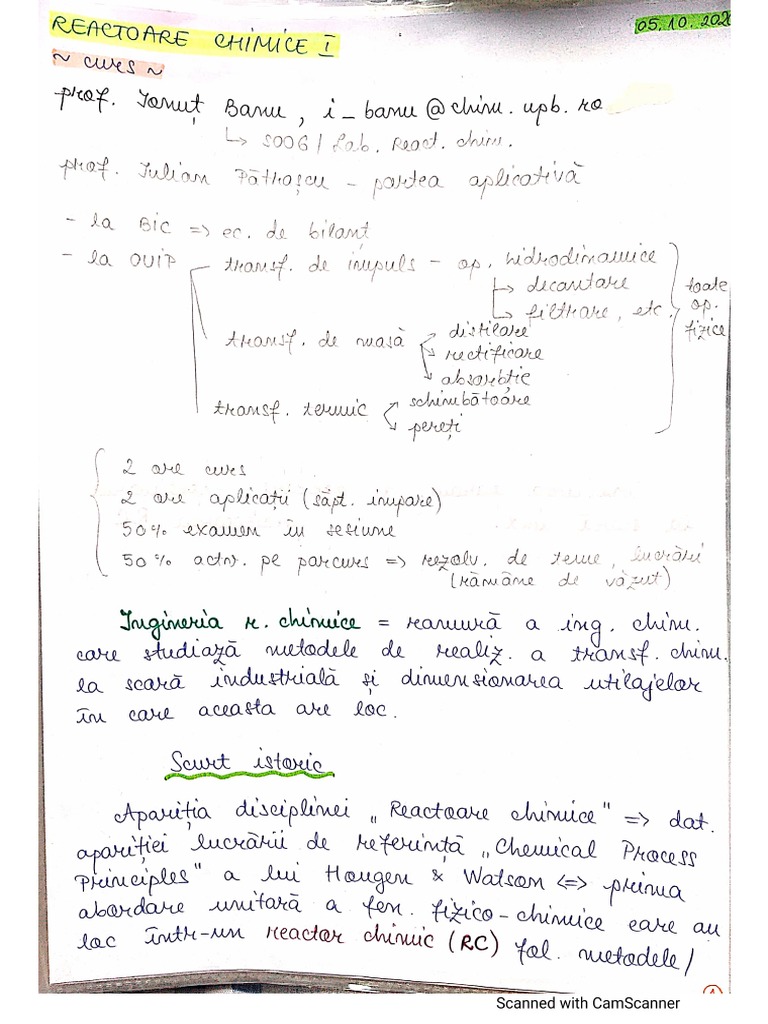 REACTOARE CHIMICE I
05.10.2020
~ curs ~
prof. Ionuț Banu, i_banu@chim.upb.ro
↳ S006 / Lab. React. chim.
prof. Iulian Pătrașcu - partea aplicativă
- la BIC => ec. de bilanț
- la OUIP transf. de impuls - op. hidrodinamice
→ decantare
→ filtrare, etc.
toate op. fizice
transf. de masă distilare
rectificare
absorbție
transf. termic schimbătoare
pereți
2 ore curs
2 ore aplicații (săpt. impare)
50% examen în sesiune
50% activ. pe parcurs => rezolv. de teme, lucrări
(rămâne de văzut)
Ingineria r. chimice = ramură a ing. chim.
care studiază metodele de realiz. a transf. chim.
la scară industrială și dimensionarea utilajelor
în care aceasta are loc.
Scurt istoric
Apariția disciplinei „Reactoare chimice" => dat.
apariției lucrării de referință „Chemical Process
Principles" a lui Hougen & Watson <=> prima
abordare unitară a fen. fizico-chimice care au
loc într-un reactor chimic (RC) fol. metodele/
1
Scanned with CamScanner